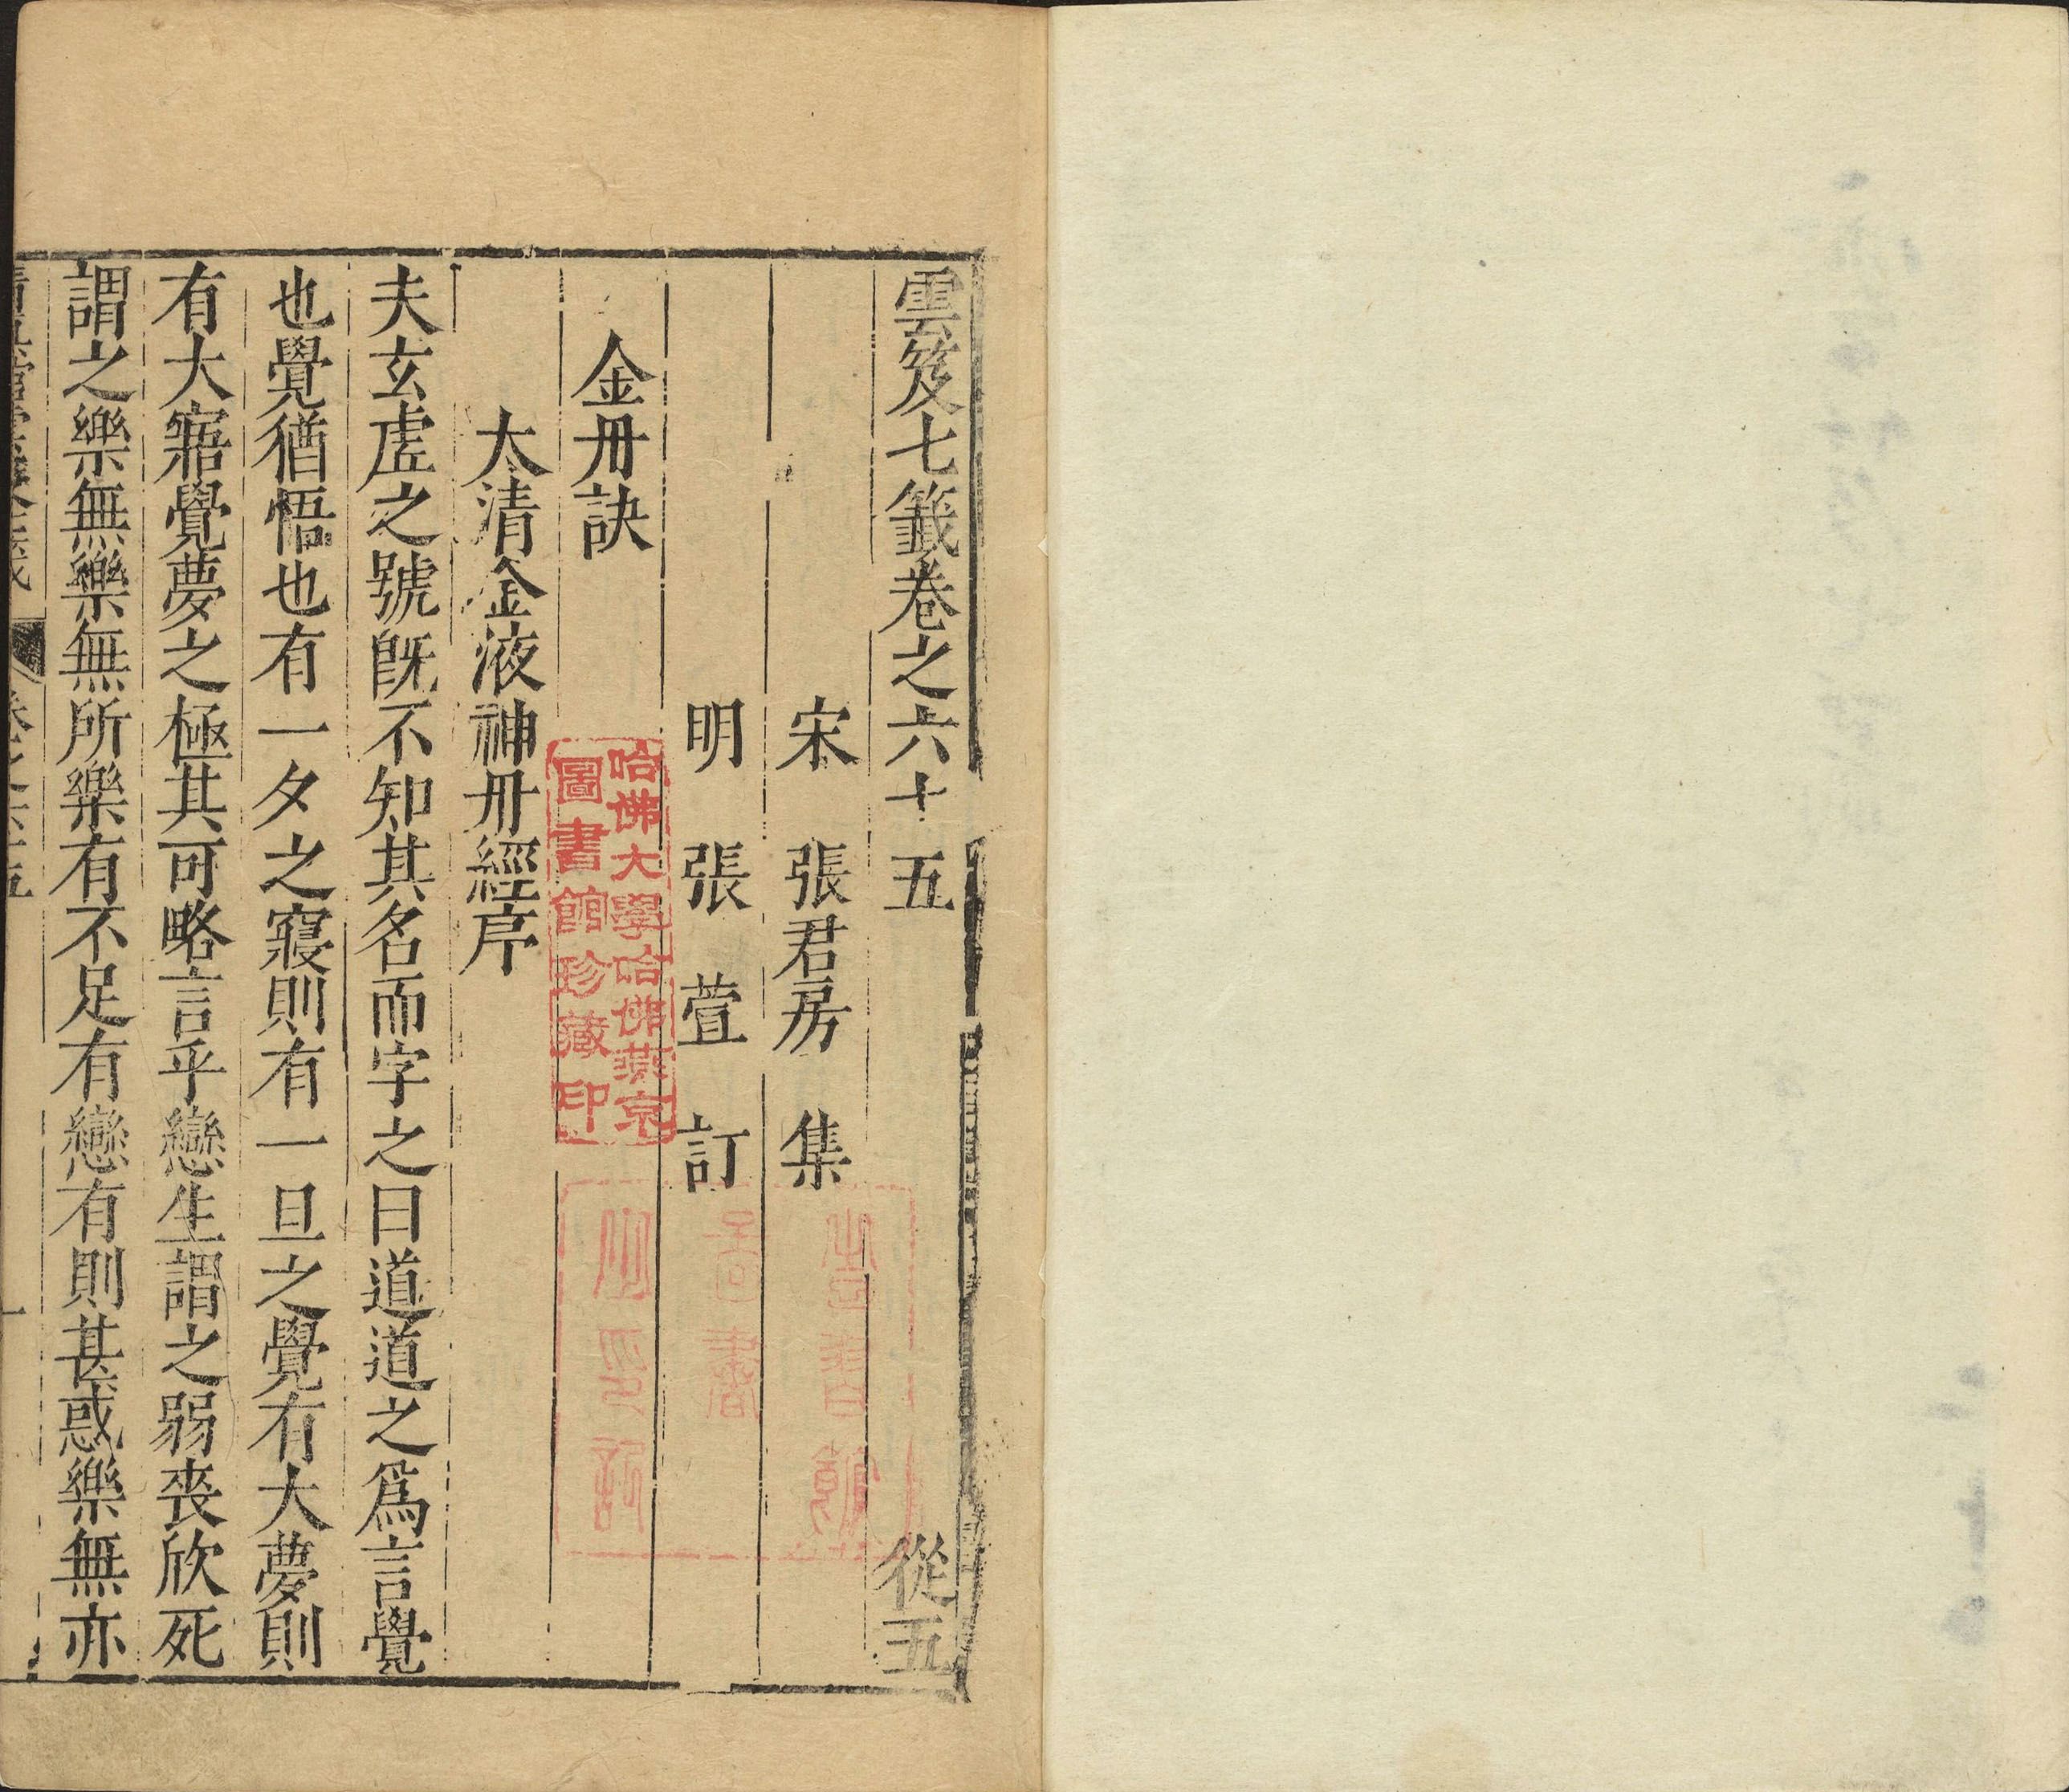 雲笈七籤卷之六十五 從五
宋 張君房 集
明 張萱 訂
金丹訣
太清金液神丹經序
夫玄虛之號旣不知其名而字之曰道道之爲言覺
也覺猶悟也有一夕之寢則有一旦之覺有大夢則
有大寤覺夢之極其可略言乎戀生謂之弱喪欣死
謂之樂無樂無所樂有不足有戀有則甚惑樂無亦
卷之六十五 一
哈佛大學哈佛燕京
圖書館珍藏印